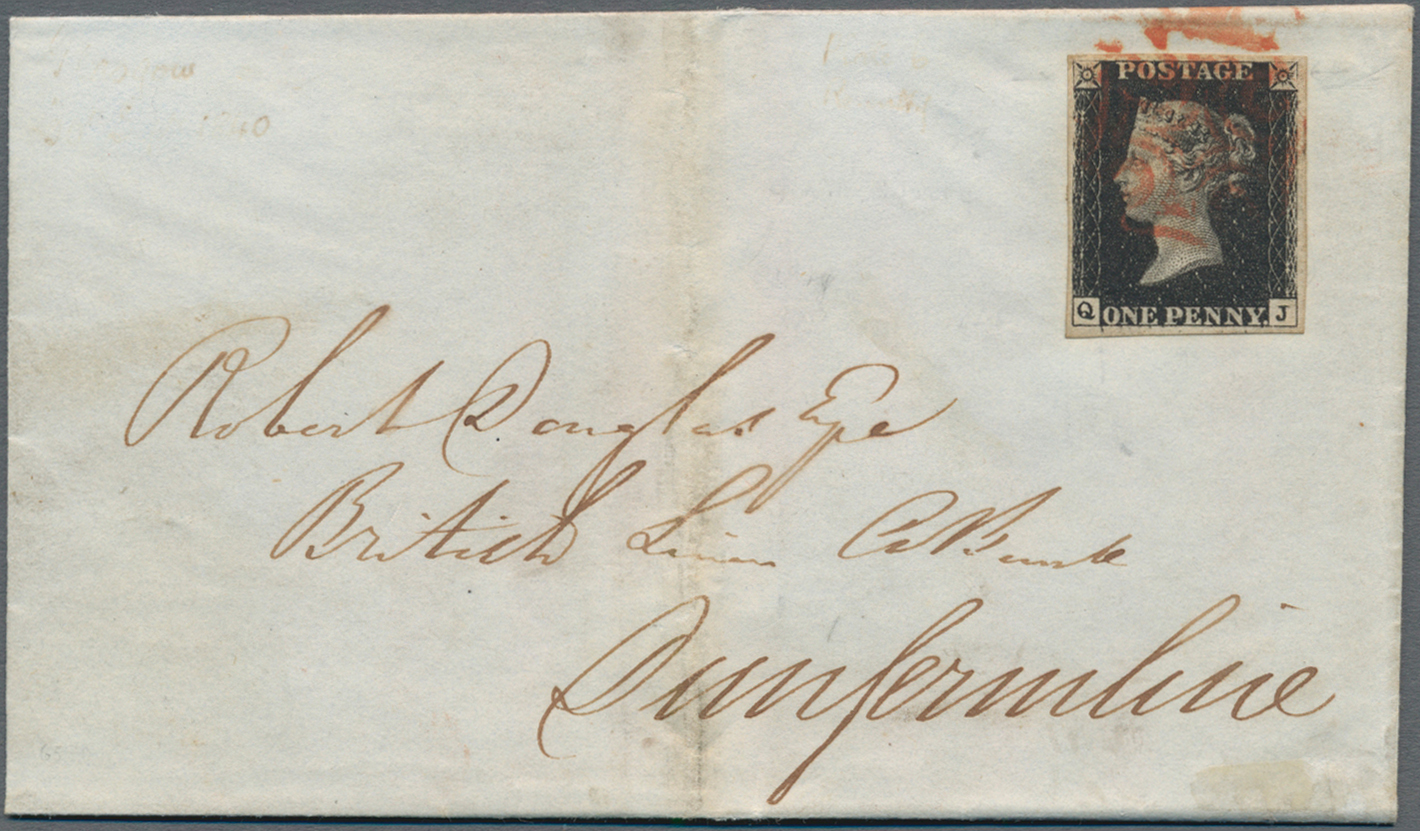 POSTAGE
Q ONE PENNY J
Robert Douglas Esqe
British Linen Co Bank
Dunfermline